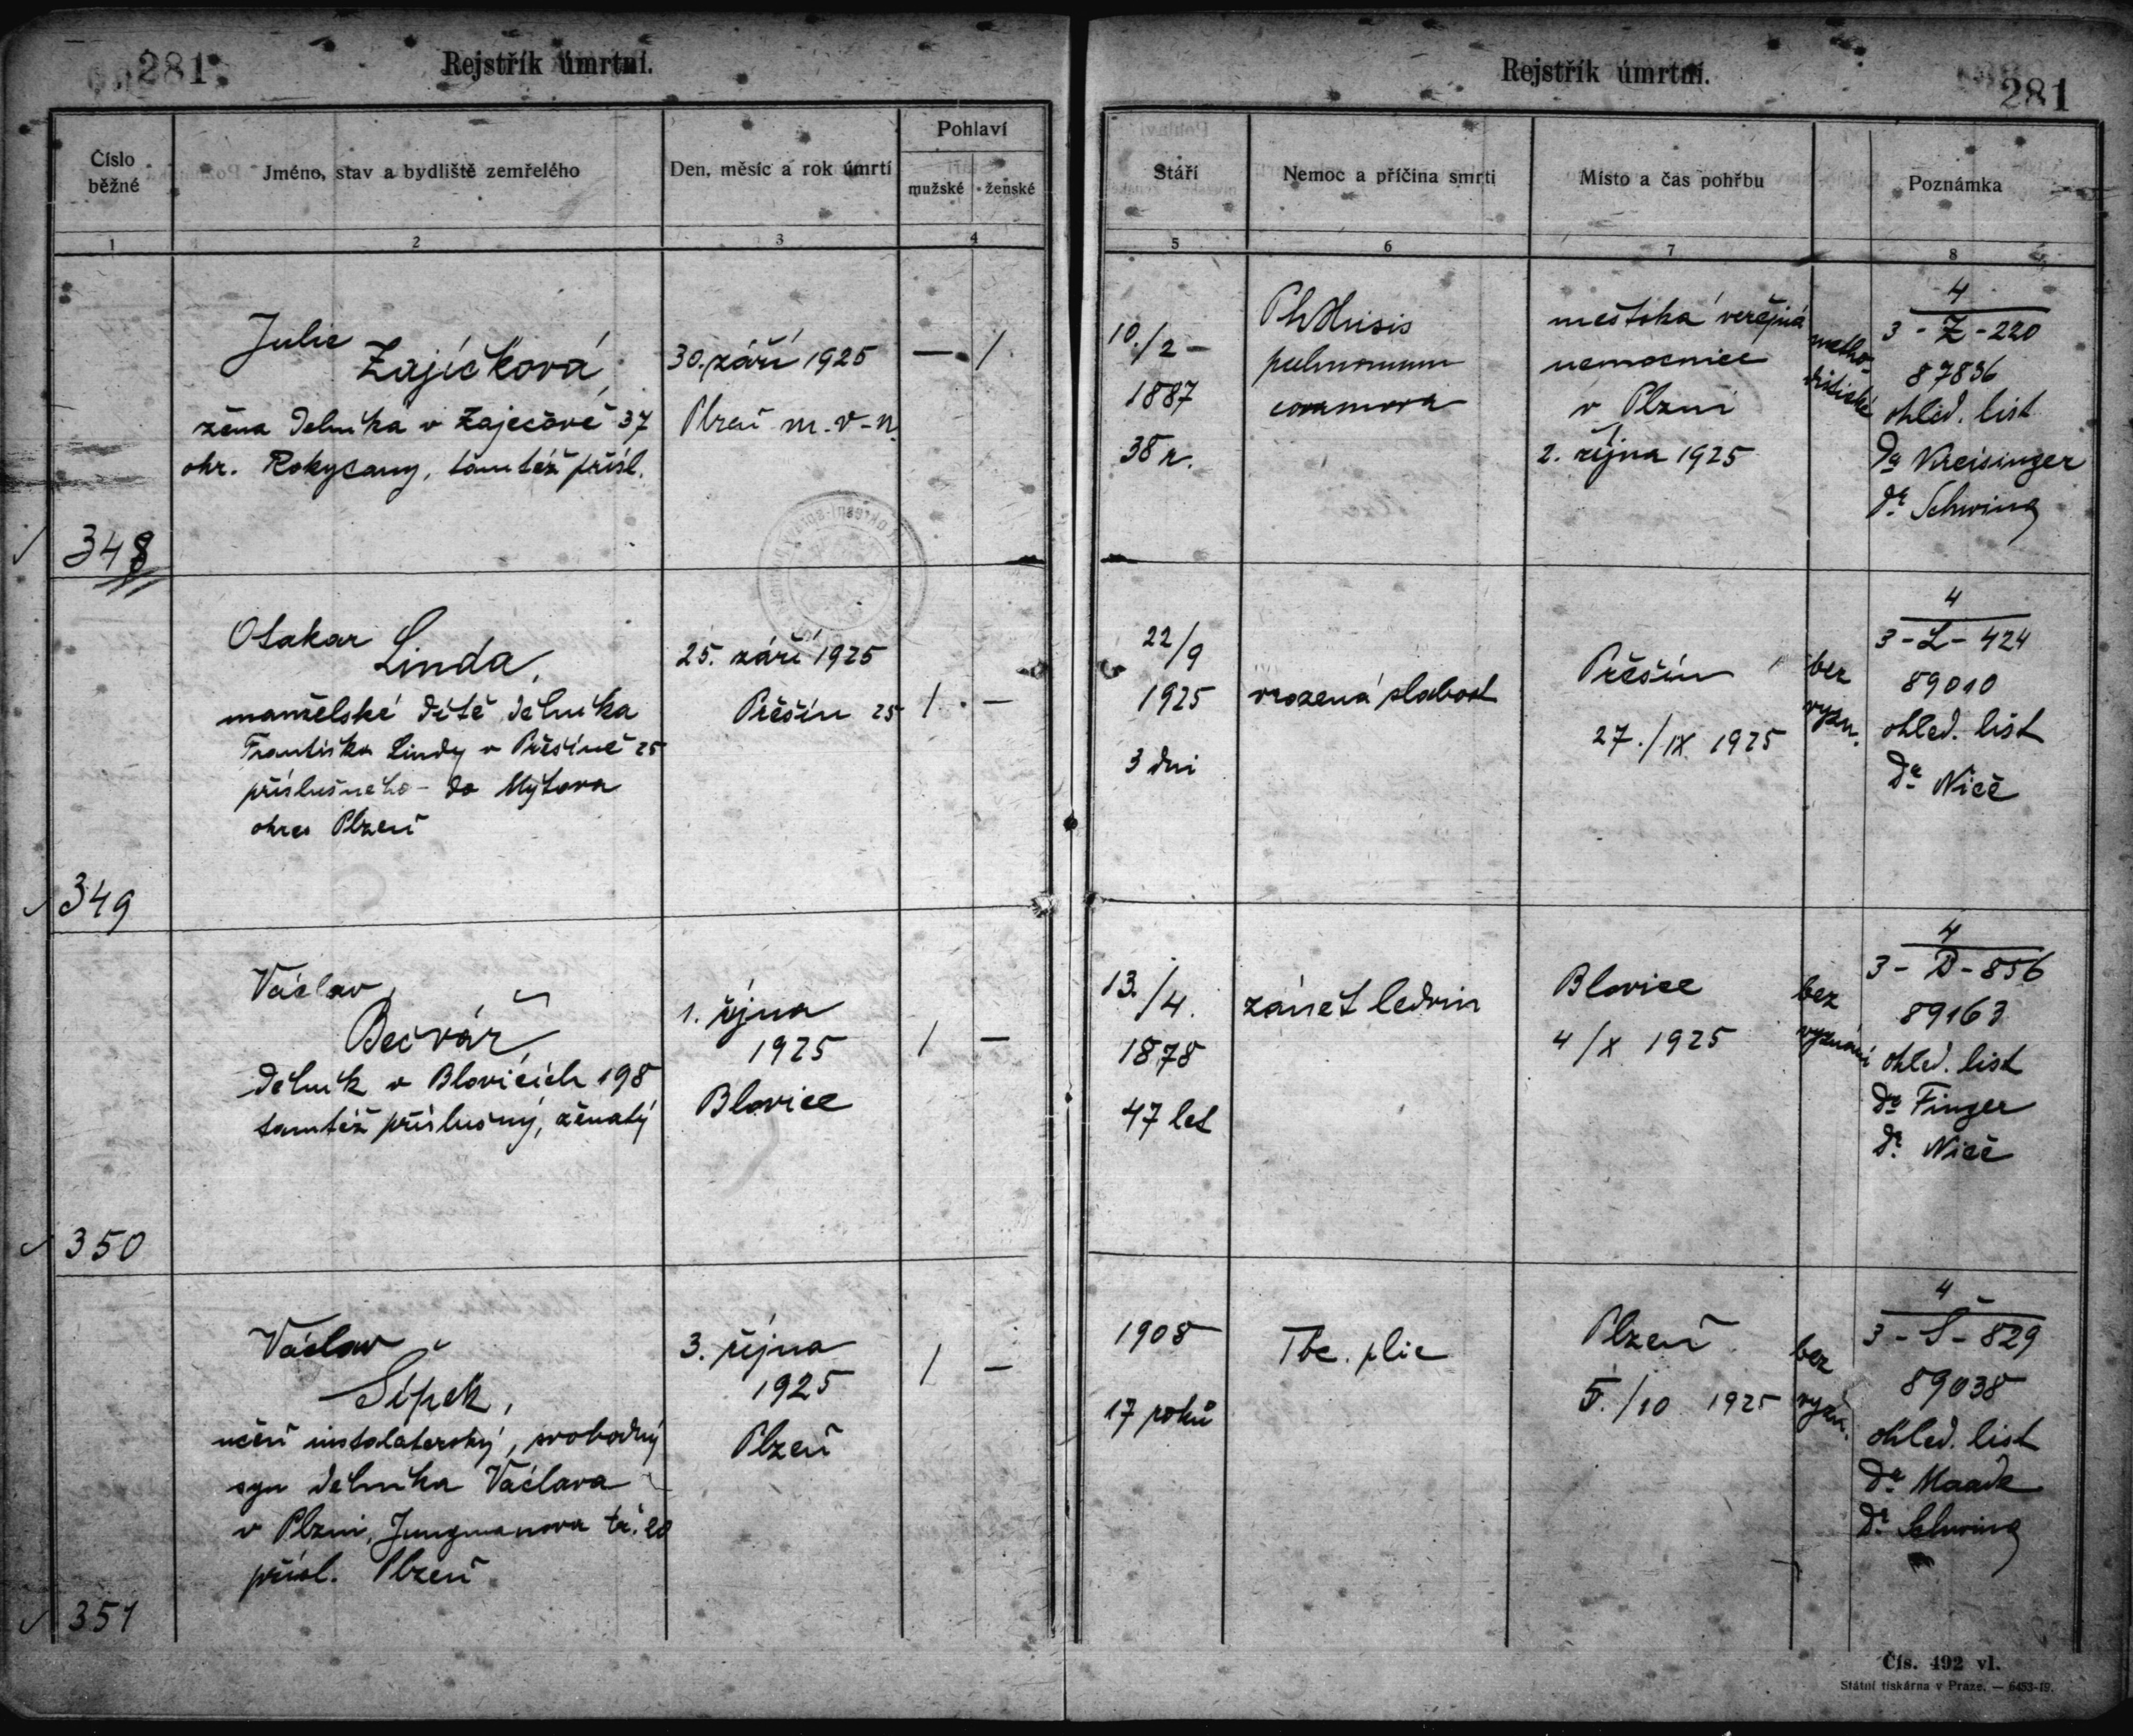 281
Rejstřík úmrtní.
Rejstřík úmrtní.
281
Číslo běžné
Jméno, stav a bydliště zemřelého
Den, měsíc a rok úmrtí
Pohlaví
mužské
ženské
Stáří
Nemoc a příčina smrti
Místo a čas pohřbu
Poznámka
1
2
3
4
5
6
7
8
348
Julie
Zajíčková,
žena dělníka v Zaječově 37
okr. Rokycany, tamtéž přísl.
30. září 1925
Plzeň m.-v-n.
— /
10./2 –
1887
38 r.
Phthisis
pulmonum
městská veřejná
nemocnice
v Plzni
2. října 1925
4
3 - Z - 220
87836
ohled. list
Dr Kreisinger
Dr. Schwing
349
Otakar
Linda,
manželské dítě dělníka
Františka Lindy v Přešíně 25
příslušného - do Mýtova
okres Plzeň
25. září 1925
Přešín 25
/ —
22/9
1925
3 dni
vrozená slabost
Přešín
27./IX 1925
bez
vyzn.
4
3 - L - 424
89010
ohled. list
Dr Nič
350
Václav
Bečvář,
dělník v Blovicích 198
tamtéž příslušný, ženatý
1. října
1925
Blovice
/ —
13./4.
1878
47 let
zánět ledvin
Blovice
4/X 1925
bez
vyznání
4
3 - B - 856
89163
ohled. list
Dr Finger
Dr. Nič
351
Václav
Šípek,
učeň instalaterský, svobodný
syn dělníka Václava
v Plzni, Jungmanova tř. 20
přísl. Plzeň
3. října
1925
Plzeň
/ —
1908
17 roků
Tbc. plic
Plzeň
5./10 1925
bez
vyzn.
4
3 - Š - 829
89038
ohled. list
Dr. Schwing
Čís. 492 vl.
Státní tiskárna v Praze. — 6453-19.